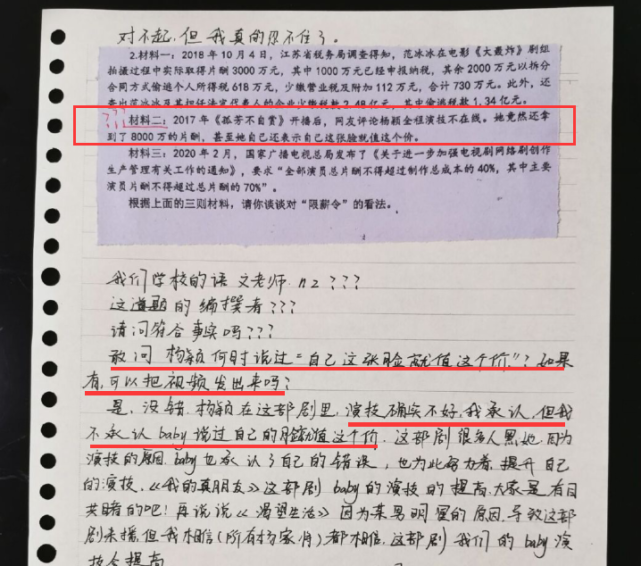 对不起，但我真的忍不住了。
2.材料一：2018年10月4日，江苏省税务局调查得知，范冰冰在电影《大轰炸》剧组
拍摄过程中实际取得片酬3000万元，其中1000万元已经申报纳税，其余2000万元以拆分
合同方式偷逃个人所得税618万元，少缴营业税及附加112万元，合计730万元。此外，还
查出范冰冰及其担任法定代表人的企业少缴税款2.48亿元，其中偷逃税款1.34亿元。
???材料二：2017年《孤芳不自赏》开播后，网友评论杨颖全程演技不在线。她竟然还拿
到了8000万的片酬，甚至她自己还表示自己这张脸就值这个价。
材料三：2020年2月，国家广播电视总局发布了《关于进一步加强电视剧网络剧创作
生产管理有关工作的通知》，要求“全部演员总片酬不得超过制作总成本的40%，其中主要
演员片酬不得超过总片酬的70%”。
根据上面的三则材料，请你谈谈对“限薪令”的看法。
我们学校的语文老师.nz???
这道题的编撰者???
请问符合事实吗???
敢问 杨颖何时说过“自己这张脸就值这个价”?如果
有,可以把视频发出来吗?
是,没错.杨颖在这部剧里,演技确实不好,我承认.但我
不承认baby说过自己的脸就值这个价.这部剧很多人黑她.因为
演技的原因.baby也承认了自己的错误,也为此努力着.提升自己
的演技.《我的真朋友》这部剧baby的演技的提高.大家是有目
共睹的吧!再说说《渴望生活》因为某男明星的原因.导致这部
剧未播.但我相信(所有杨家将)都相信.这部剧我们的baby演
技会提高